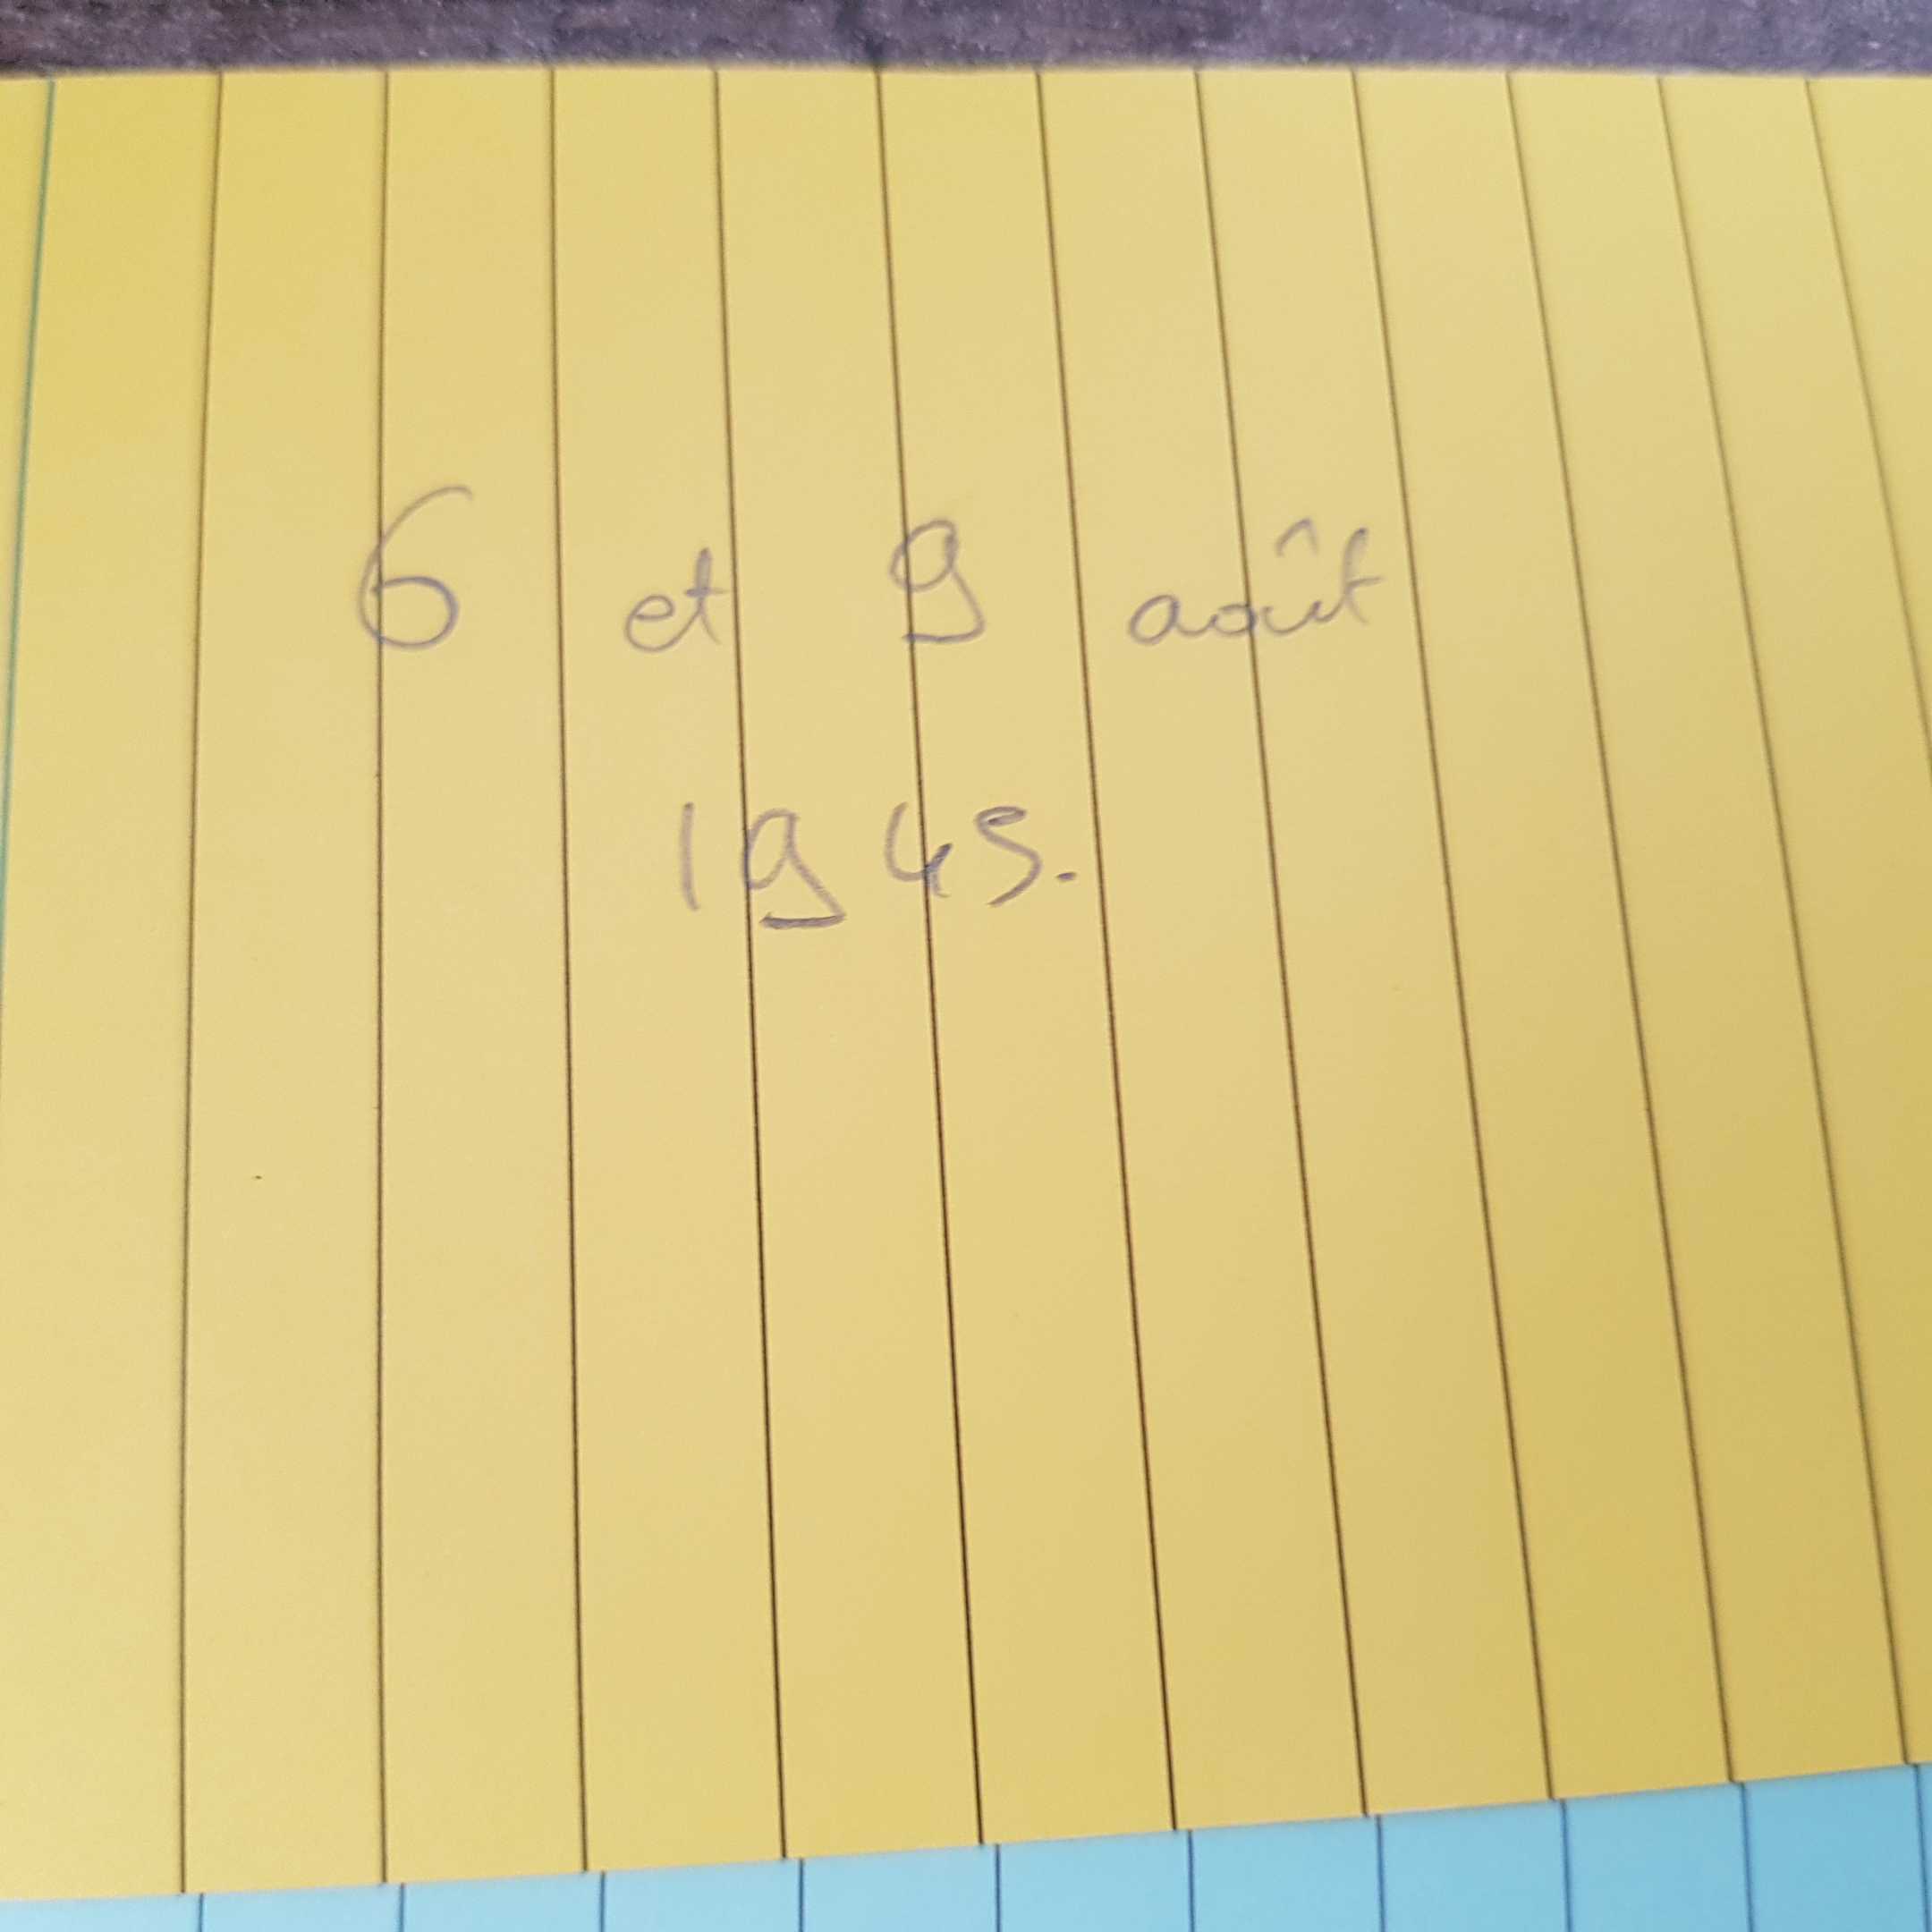 6 et 9 août
1945.